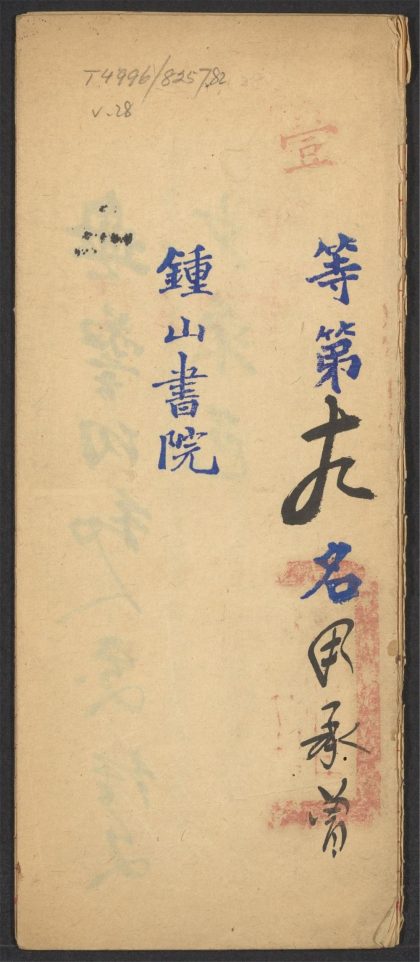 T4996/8257.82
v.28
壹等第十九名周承曾
鍾山書院